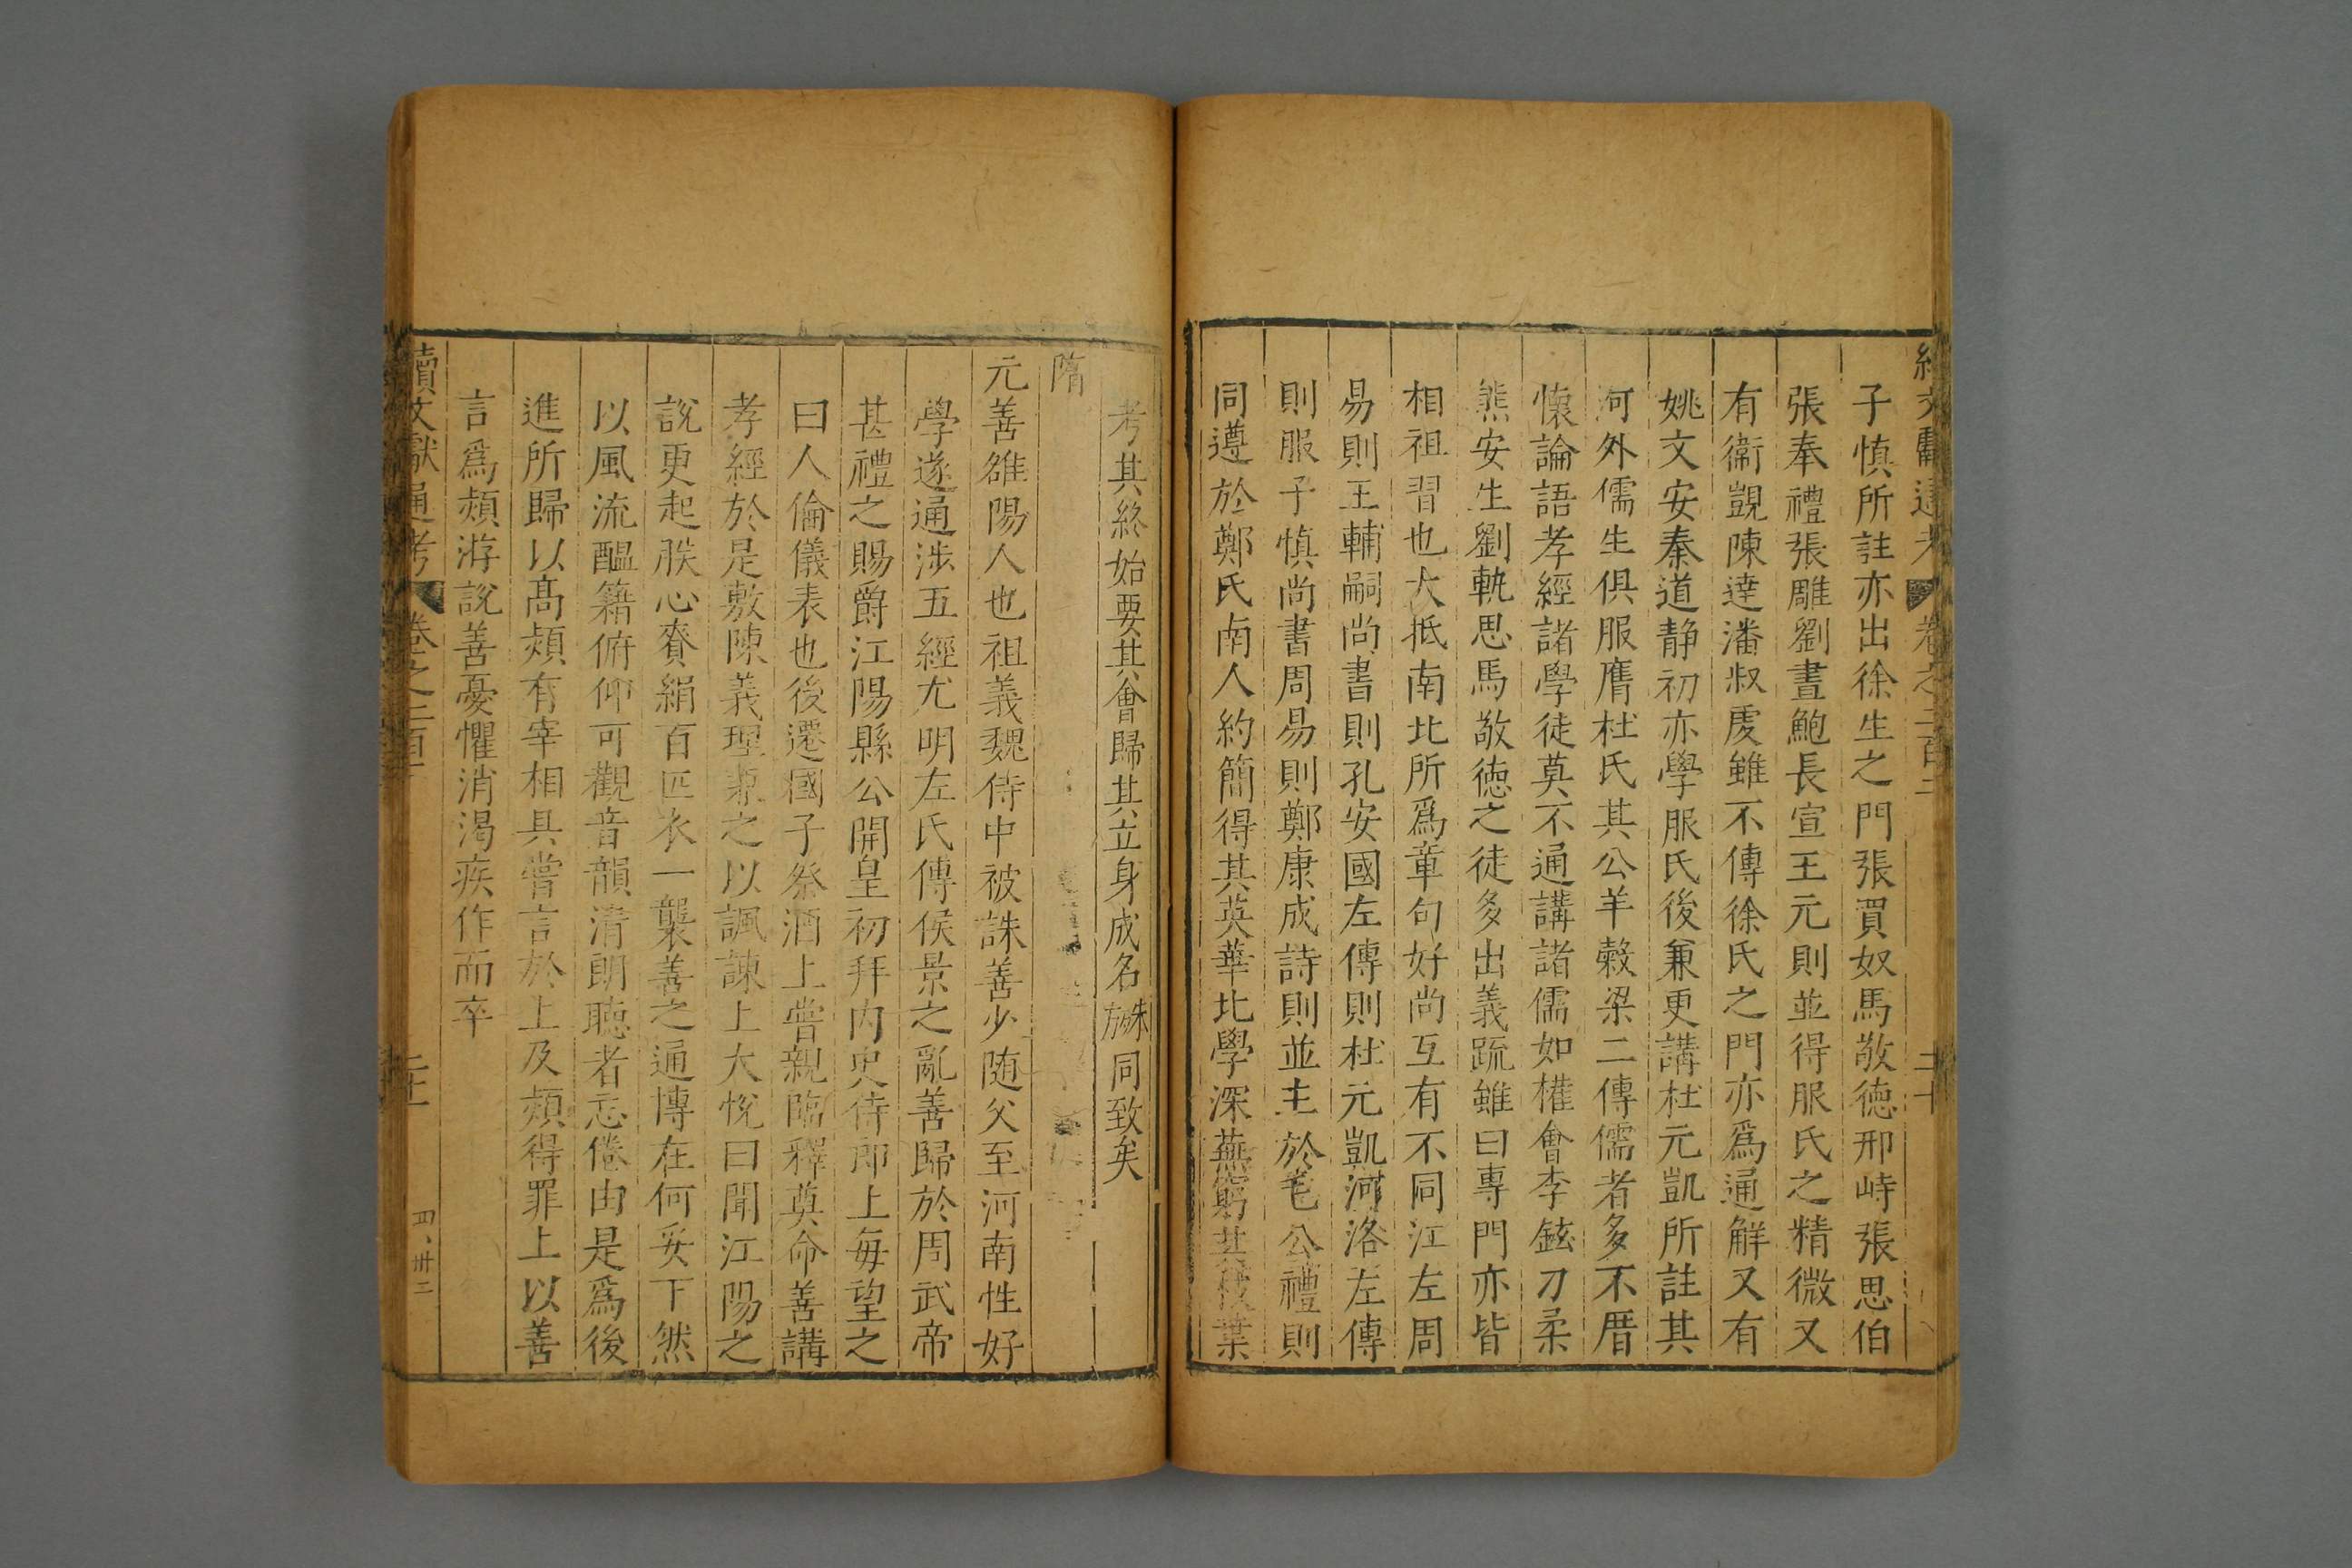 子慎所註亦出徐生之門張買奴馬敬德邢峙張思伯
張奉禮張雕劉晝鮑長宣王元則並得服氏之精微又
有衞覬陳達潘叔虔雖不傳徐氏之門亦爲通解又有
姚文安秦道静初亦學服氏後兼更講杜元凱所註其
河外儒生俱服膺杜氏其公羊穀梁二傳儒者多不厝
懷論語孝經諸學徒莫不通講諸儒如權會李鉉刀柔
熊安生劉軌思馬敬德之徒多出義疏雖曰專門亦皆
相祖習也大抵南北所爲章句好尚互有不同江左周
易則王輔嗣尚書則孔安國左傳則杜元凱河洛左傳
則服子慎尚書周易則鄭康成詩則並主於毛公禮則
同遵於鄭氏南人約簡得其英華北學深蕪窮其枝葉
考其終始要其會歸其立身成名殊方同致矣
隋
元善雒陽人也祖義魏侍中被誅善少随父至河南性好
學遂通涉五經尤明左氏傳侯景之亂善歸於周武帝
甚禮之賜爵江陽縣公開皇初拜内史侍郎上毎望之
曰人倫儀表也後遷國子祭酒上嘗親臨釋奠命善講
孝經於是敷陳義理兼之以諷諌上大悦曰聞江陽之
說更起朕心賚絹百匹衣一襲善之通博在何妥下然
以風流醞籍俯仰可觀音韻清朗聴者忘倦由是爲後
進所歸以髙熲有宰相具嘗言於上及熲得罪上以善
言爲熲游說善憂懼消渴疾作而卒
續文獻通考 卷之二百二